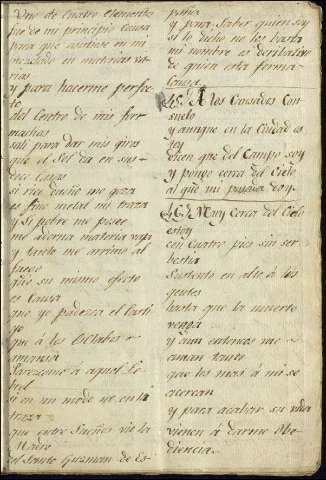 Uno de Cuatro elementos
fué de mi principio Causa
para que asistiese en mi
mezclado en materias va
rias
y para hacerme perfec
to
del Centro de mis for
machas
sali para dar mis giros
que el Sol dia en sus
doce Casas
si rica dadio me goza
es fino metal mi traza
y si pobre me posee
me adorna materia vaja
y tanto me arrimo al
fuego
que su mismo efecto
es Causa
que yo padezca el Casti
go
que á los
amenaza
Parezcome á aquel
si en un modo no en la
traza
que entre Sueños vio la
Madre
del Santo Guzman de Es
patria
y para saber quien soy
si lo dicho no les basta
mi nombre es
de quien esta forma
Causa
45. A los Cruzados Con
suelo
y aunque en la Ciudad es
toy
dicen que del Campo soy
y pongo cerca del Cielo
al que mi posada doy.
46. Muy Cerca del Cielo
estoy
con Cuatro pies sin ser
bestia
Sustento en alto á los
gentes
hasta que la muerte
venga
y aun entonces me
aman tanto
que los mas á mi se
acercan
y para acabar su vida
vienen á darme Obe
diencia.